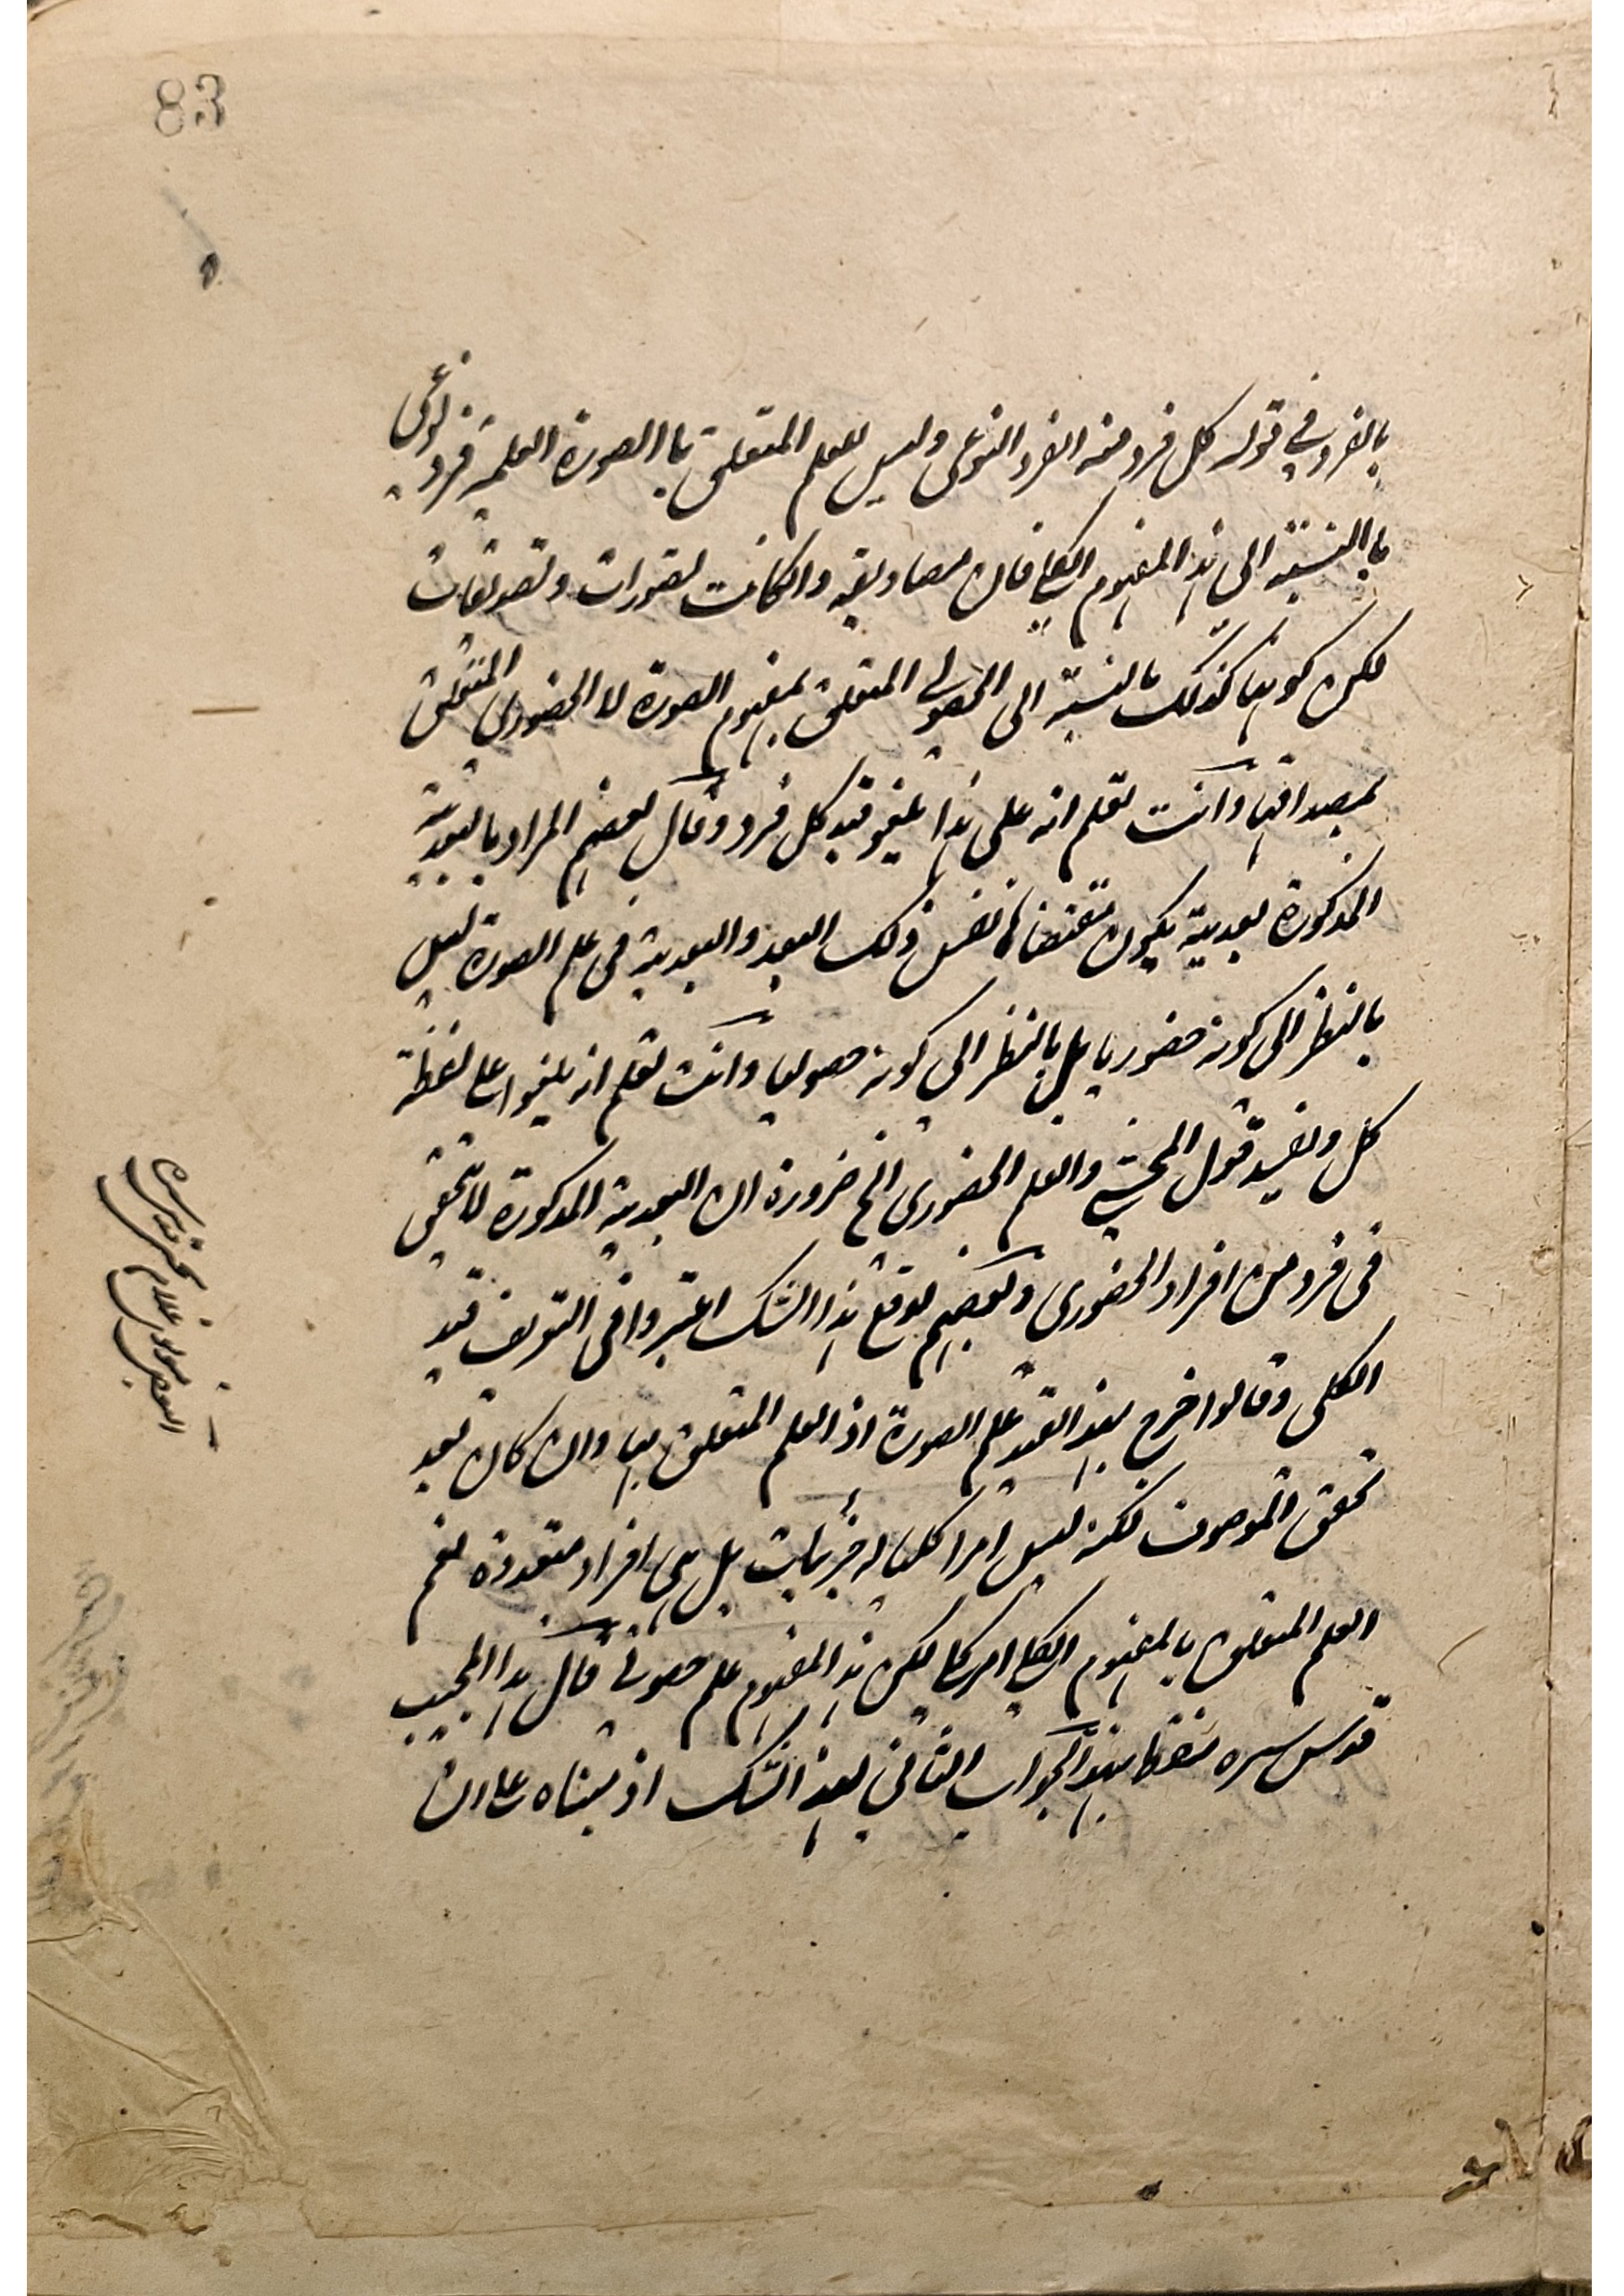 83
بالفرد في قوله كل فرد منه الفرد النوعى وليس للعلم المتعلق باالصورة العلمية فرد نوعى
باالنسبة الى هذا المفهوم الكلي فان مصاديقه وانكانت تصورات وتصديقات
لكن كونها كذلك بالنسبة الى الحصولي المتعلق بمفهوم الصورة لا الحضورى المتعلق
بمصداقها وانت تعلم انه على هذا يلغو قيد كل فرد وقال بعضهم المراد بالبعدية
المذكورة بعدية يكون مقتضاها نفس ذلك البعد والبعدية في علم الصورة ليس
بالنظر الى كونه حضوريا بل بالنظر الى كونه حصوليا وانت تعلم انه يلغوا على لفظة
كل ويفسد قول المحشي والعلم الحضورى الخ ضرورة ان البعدية المذكورة لا تتحقق
فى فرد من افراد الحضورى وبعضهم لدفع هذا الشك اعتبروا فى التعريف قيد
الكلى وقالوا خرج بهذا القيد علم الصورة اذ العلم المتعلق بها وان كان بعد
تحقق الموصوف لكنه ليس امرا كليا له جزئيات بل هى افراد متعددة نعم
العلم المتعلق بالمفهوم الكلي امر كلي لكن هذا المفهوم علم حصولي قال هذا المجيب
قدس سره سقط بهذا الجواب الثاني لهذا الشك اذ مبناه على ان
البعض مولوى غلام محمد قدس سره